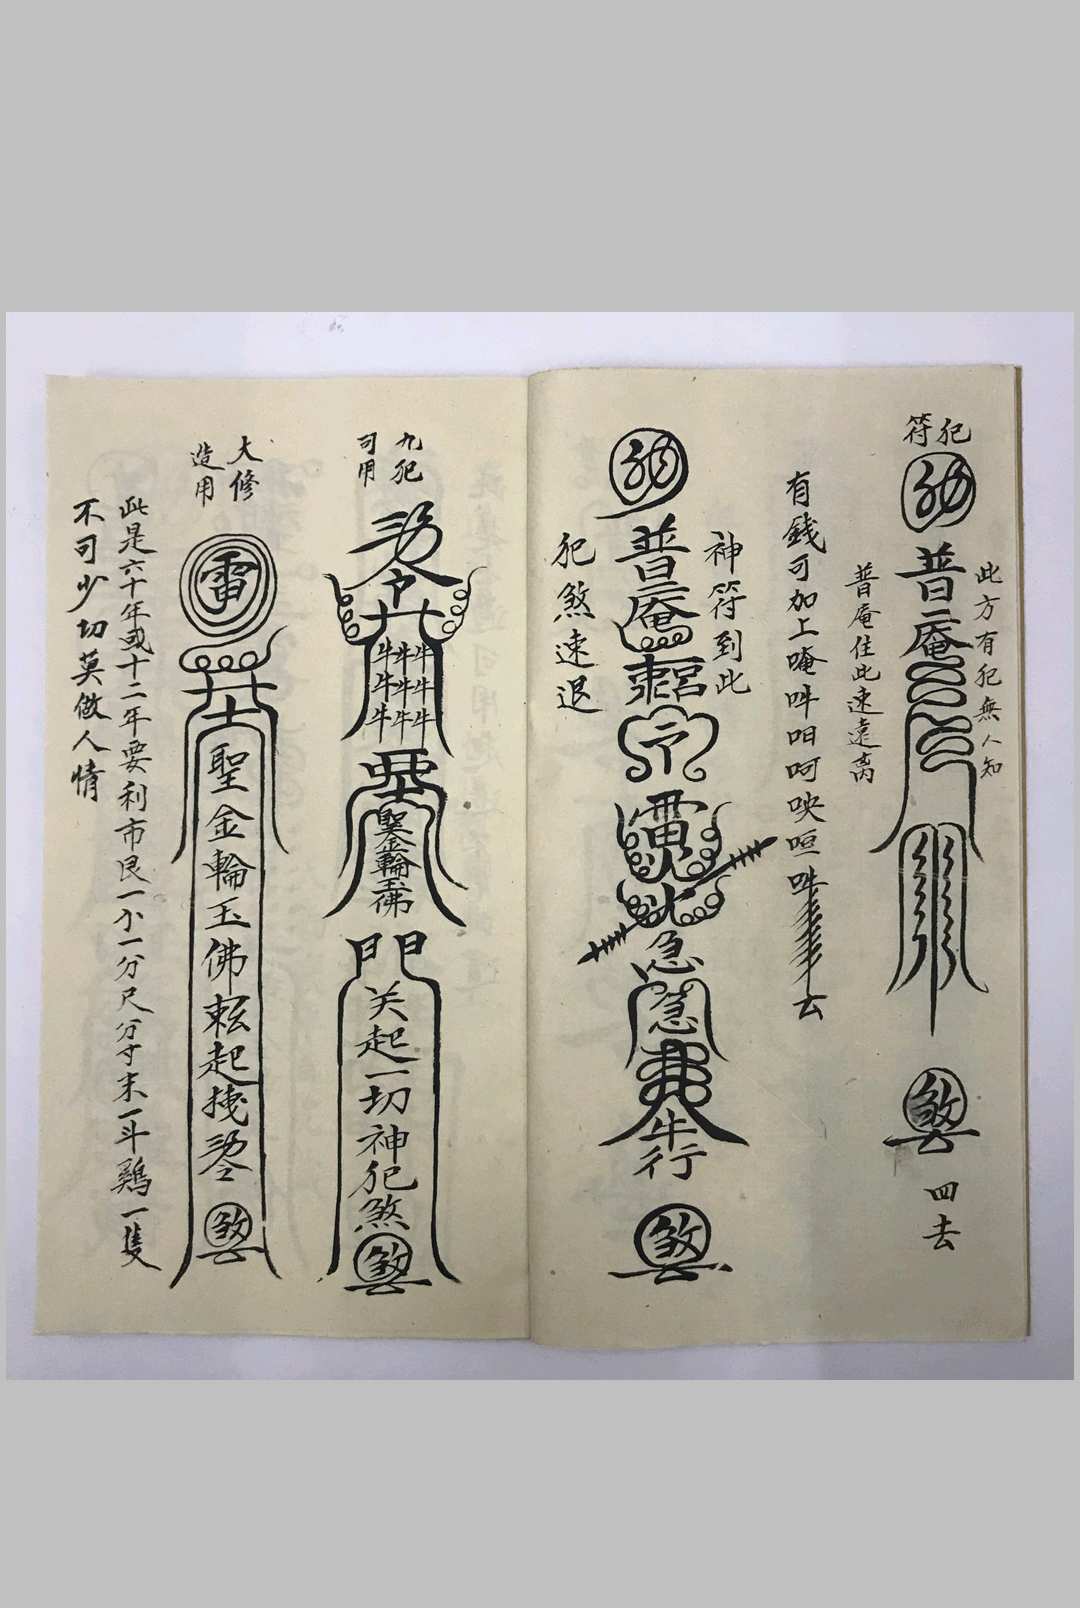 犯符
此方有犯無人知
普庵
煞
普庵住此速遠离
四去
有錢可加上唵吽呬呵唊咺吽
去
神符到此
普庵
雷火
急急
牛行
煞
犯煞速退
九犯司用
牛牛牛
牛牛牛
牛牛牛
聖金輪玉佛
关起一切神犯煞
煞
大修造用
雷
聖金輪玉佛
起
煞
此是六十年或十二年要利市艮一小一分尺分寸末一斗鷄一隻
不可少切莫做人情